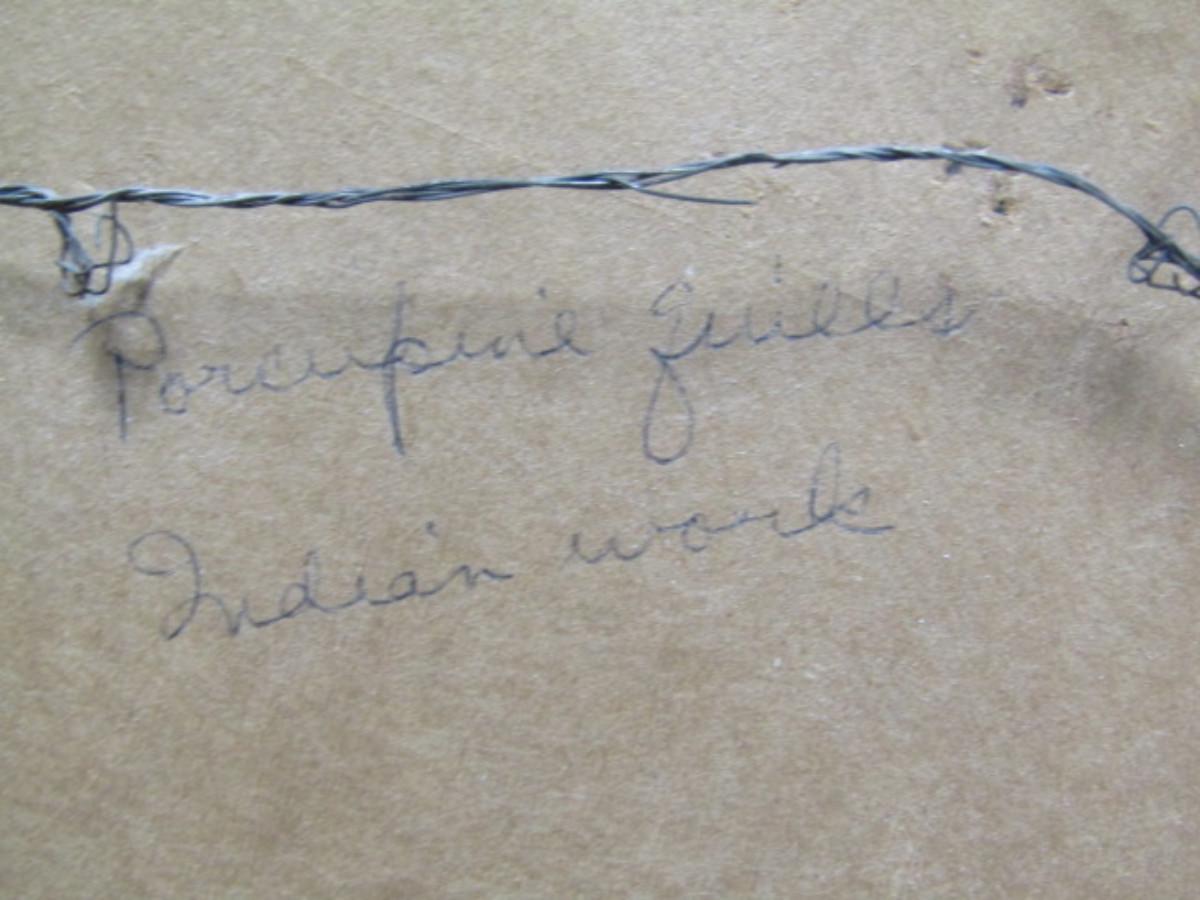 Porcupine Quills
Indian work